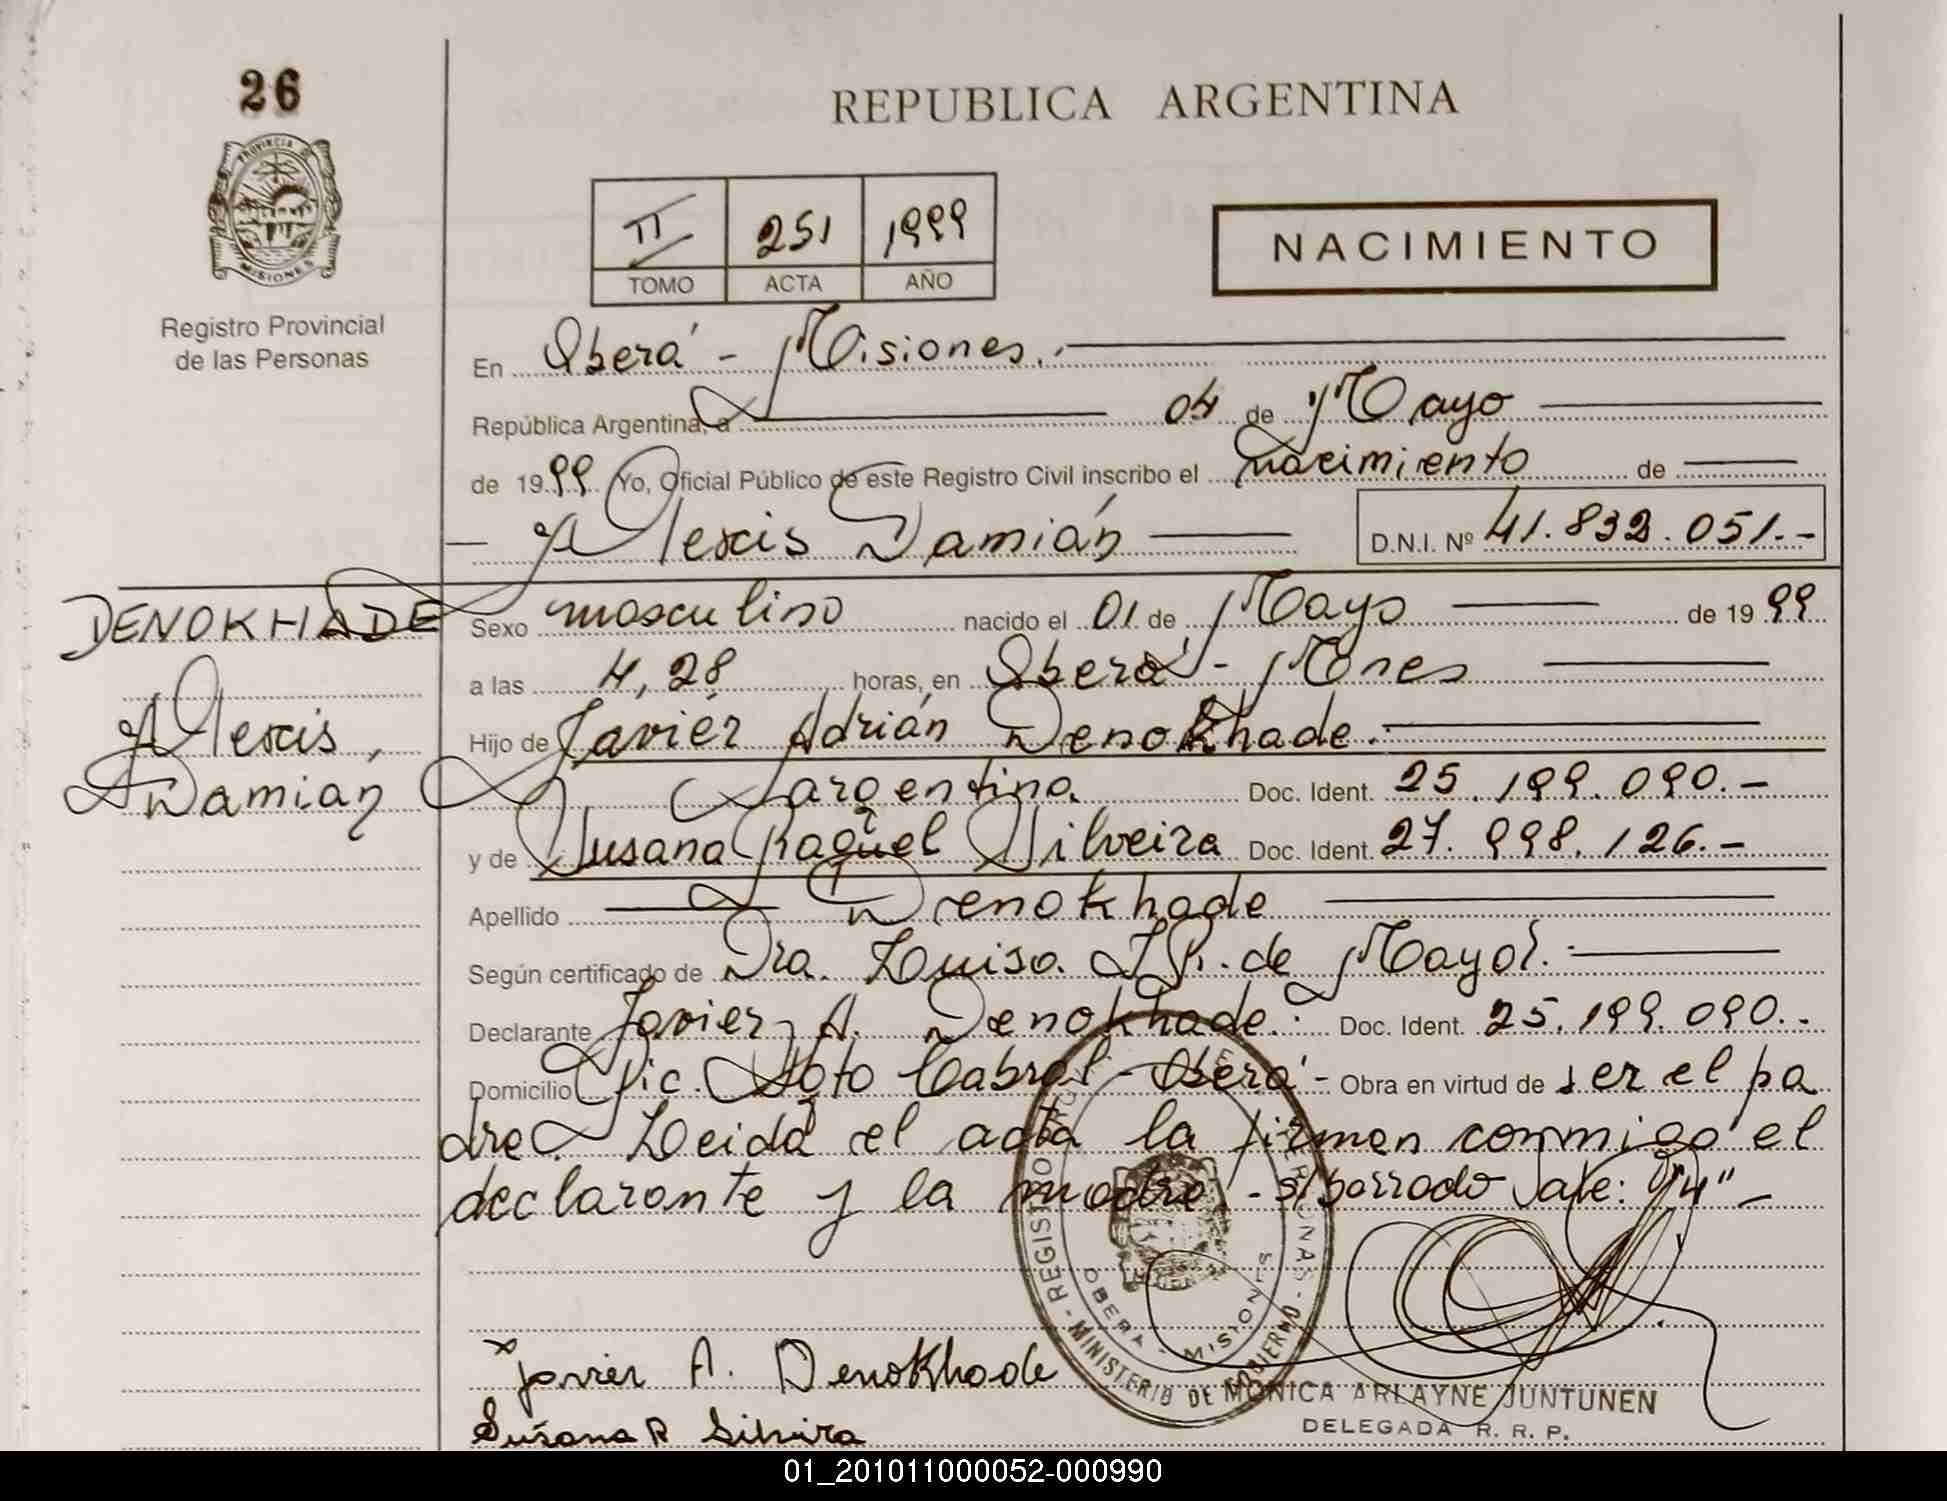 26
REPUBLICA ARGENTINA
PROVINCIA DE
MISIONES
II 251 1999
TOMO ACTA AÑO
NACIMIENTO
Registro Provincial
de las Personas
En Oberá - Misiones.
República Argentina, a 04 de Mayo
de 1999 Yo, Oficial Público de este Registro Civil inscribo el nacimiento de
Alexis Damián D.N.I. Nº 41.832.051.-
DENOKHADE
Alexis
Damián
Sexo masculino nacido el 01 de Mayo de 1999
a las 4,28 horas, en Oberá - Mones
Hijo de Javier Adrián Denokhade.
argentina Doc. Ident. 25.199.090.-
y de Susana Raquel Silveira Doc. Ident. 27.998.126.-
Apellido Denokhade
Según certificado de Dra. Luisa de Mayol.
Declarante Javier A. Denokhade. Doc. Ident. 25.199.090.-
Domicilio Pic. Sgto Cabral - Oberá - Obra en virtud de ser el pa
dre. Leida el acta la firman conmigo el
declarante y la madre - s/borrado vale: "4" -
REGISTRO PERSONAS - MINISTERIO DE GOBIERNO
OBERA - MISIONES
Javier A. Denokhade
Susana R Silvira
MONICA ARLAYNE JUNTUNEN
DELEGADA R. R. P.
01_201011000052-000990